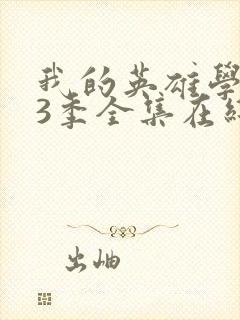 我的英雄學
3季全集在
出岫